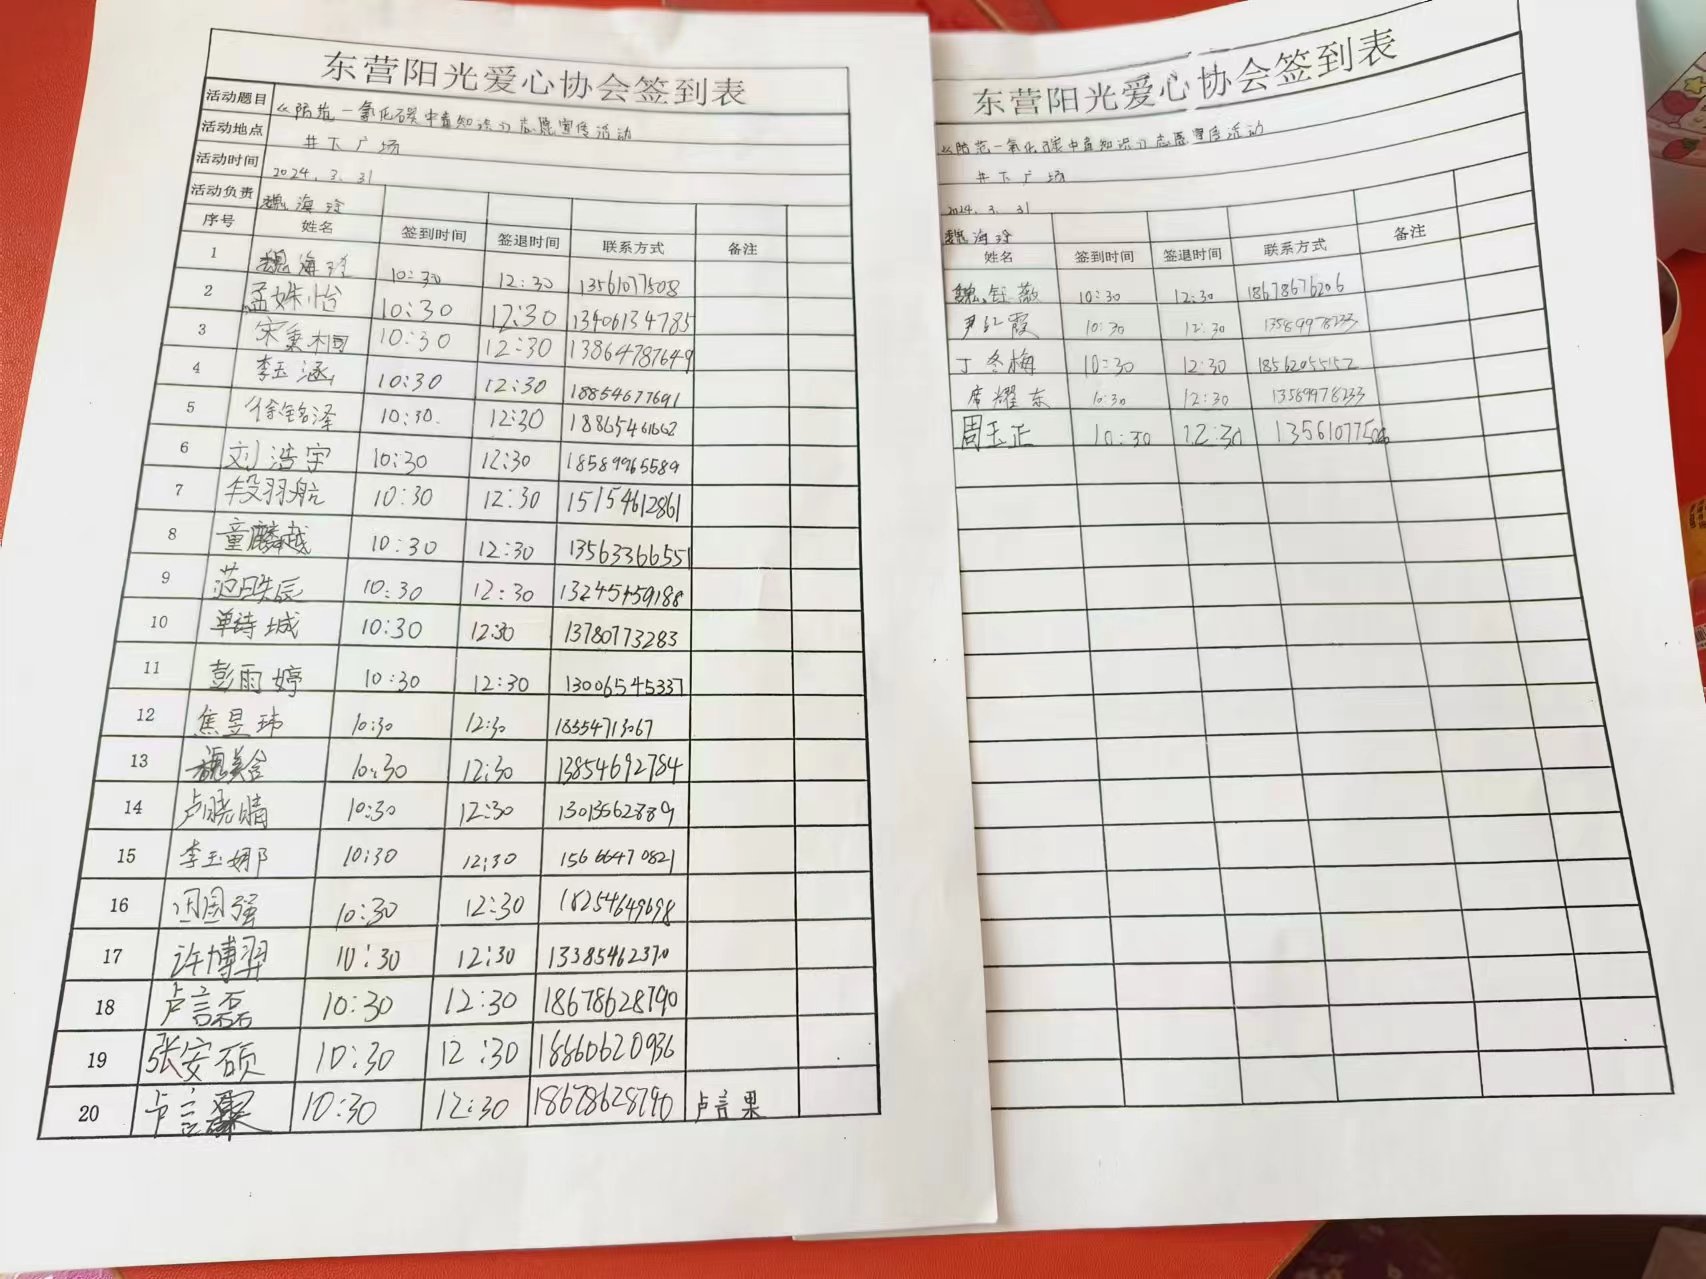 东营阳光爱心协会签到表
活动题目 《防范一氧化碳中毒知识》志愿宣传活动
活动地点 井下广场
活动时间 2024.3.31
活动负责 魏海玲
序号 姓名 签到时间 签退时间 联系方式 备注
1 魏海玲 10:30 12:30 13561077508
2 孟姝怡 10:30 12:30 13406134785
3 宋秉桐 10:30 12:30 13864787649
4 李玉涵 10:30 12:30 18854677691
5 徐铭泽 10:30. 12:30 18865461662
6 刘浩宇 10:30 12:30 18589965589
7 段羽航 10:30 12:30 15154612861
8 童麟越 10:30 12:30 13563366551
9 范皓辰 10:30 12:30 13245459188
10 单诗城 10:30 12:30 13780773283
11 彭雨婷 10:30 12:30 13006545337
12 焦昱玮 10:30 12:30 18554713067
13 魏美含 10:30 12:30 13854692784
14 卢晓晴 10:30 12:30 13013562889
15 李玉娜 10:30 12:30 15666470821
16 国强 10:30 12:30 18254649698
17 许博羿 10:30 12:30 13385462370
18 卢言磊 10:30 12:30 18678628790
19 张安硕 10:30 12:30 18860620936
20 卢言 10:30 12:30 18678628790 卢言果
东营阳光爱心协会签到表
《防范一氧化碳中毒知识》志愿宣传活动
井下广场
2024.3.31
魏海玲
姓名 签到时间 签退时间 联系方式 备注
魏钰薇 10:30 12:30 18678676206
尹红霞 10:30 12:30 13589978233
丁冬梅 10:30 12:30 18562055152
席耀东 10:30 12:30 13589978233
周玉正 10:30 12:30